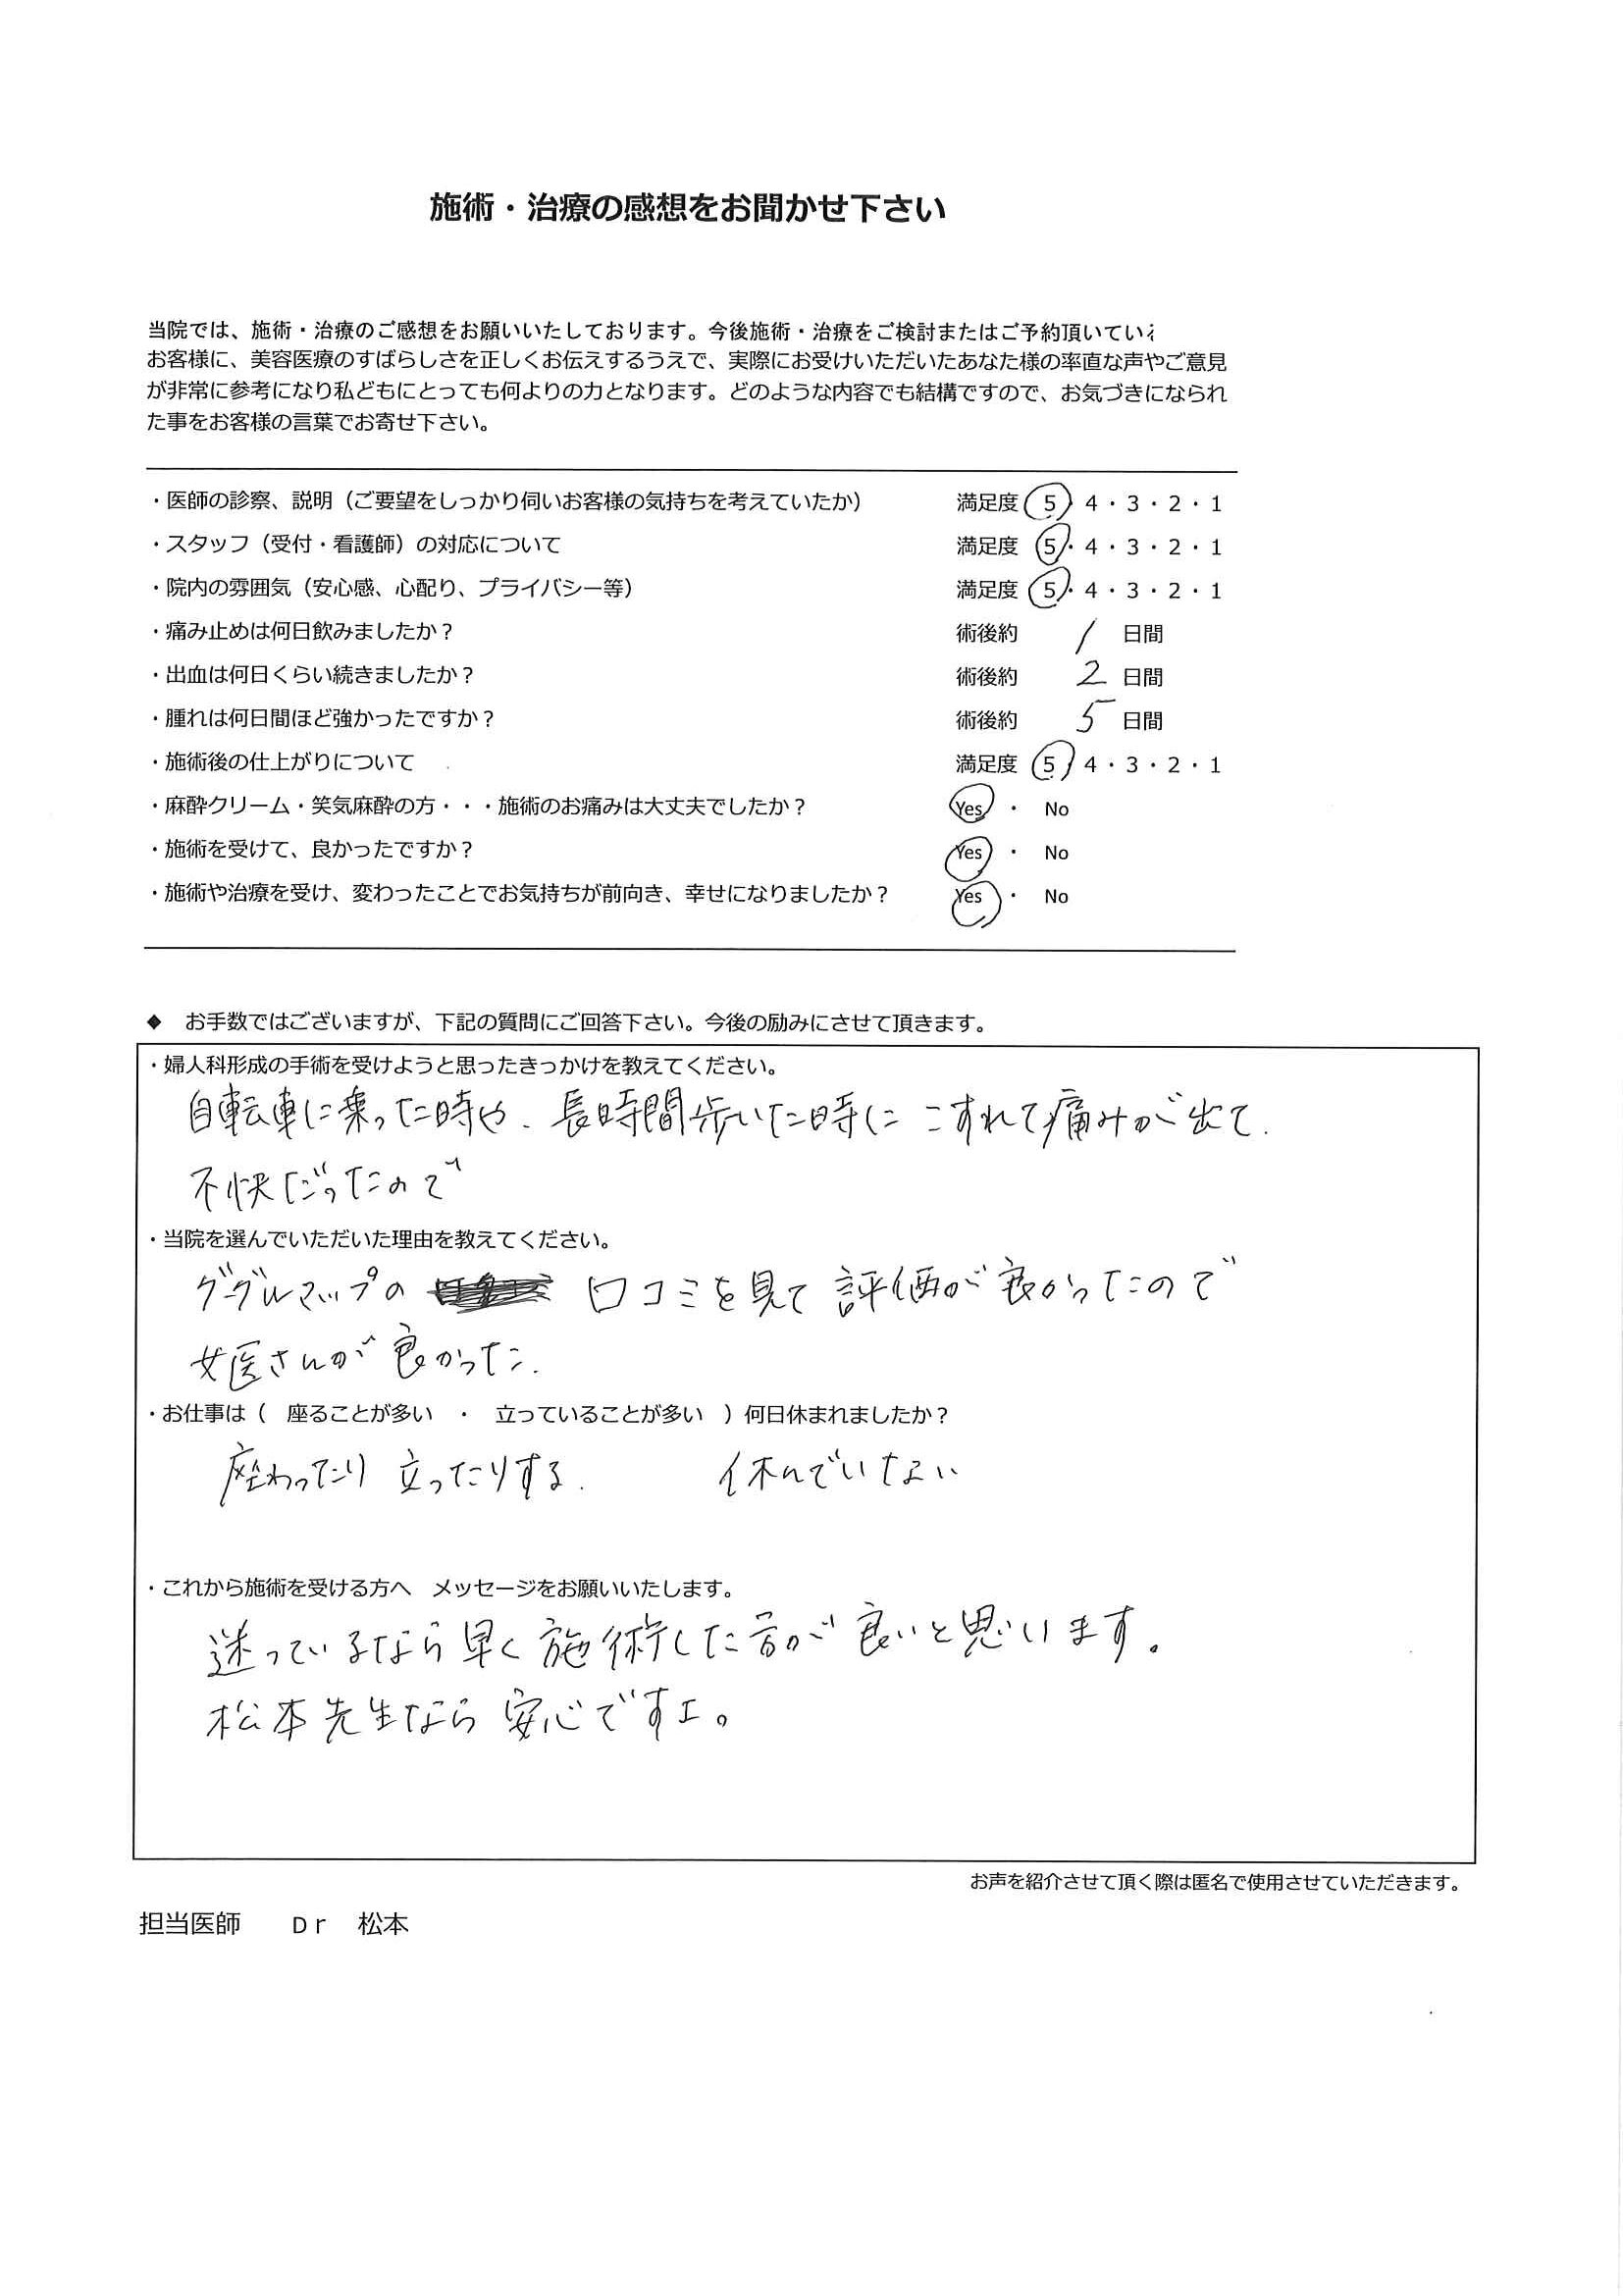 施術・治療の感想をお聞かせ下さい
当院では、施術・治療のご感想をお願いいたしております。今後施術・治療をご検討またはご予約頂いている
お客様に、美容医療のすばらしさを正しくお伝えするうえで、実際にお受けいただいたあなた様の率直な声やご意見
が非常に参考になり私どもにとっても何よりの力となります。どのような内容でも結構ですので、お気づきになられ
た事をお客様の言葉でお寄せ下さい。
・医師の診察、説明（ご要望をしっかり伺いお客様の気持ちを考えていたか） 満足度 5・4・3・2・1
・スタッフ（受付・看護師）の対応について 満足度 5・4・3・2・1
・院内の雰囲気（安心感、心配り、プライバシー等） 満足度 5・4・3・2・1
・痛み止めは何日飲みましたか？ 術後約 1 日間
・出血は何日くらい続きましたか？ 術後約 2 日間
・腫れは何日間ほど強かったですか？ 術後約 5 日間
・施術後の仕上がりについて 満足度 5・4・3・2・1
・麻酔クリーム・笑気麻酔の方・・・施術のお痛みは大丈夫でしたか？ Yes ・ No
・施術を受けて、良かったですか？ Yes ・ No
・施術や治療を受け、変わったことでお気持ちが前向き、幸せになりましたか？ Yes ・ No
◆ お手数ではございますが、下記の質問にご回答下さい。今後の励みにさせて頂きます。
・婦人科形成の手術を受けようと思ったきっかけを教えてください。
自転車に乗った時や、長時間歩いた時に こすれて痛みが出て、
不快だったので
・当院を選んでいただいた理由を教えてください。
グーグルマップの 口コミを見て 評価が良かったので
女医さんが良かった。
・お仕事は（ 座ることが多い ・ 立っていることが多い ）何日休まれましたか？
座わったり 立ったりする。 休んでいない
・これから施術を受ける方へ メッセージをお願いいたします。
迷っているなら早く施術した方が良いと思います。
松本先生なら安心ですよ。
お声を紹介させて頂く際は匿名で使用させていただきます。
担当医師 Ｄｒ 松本